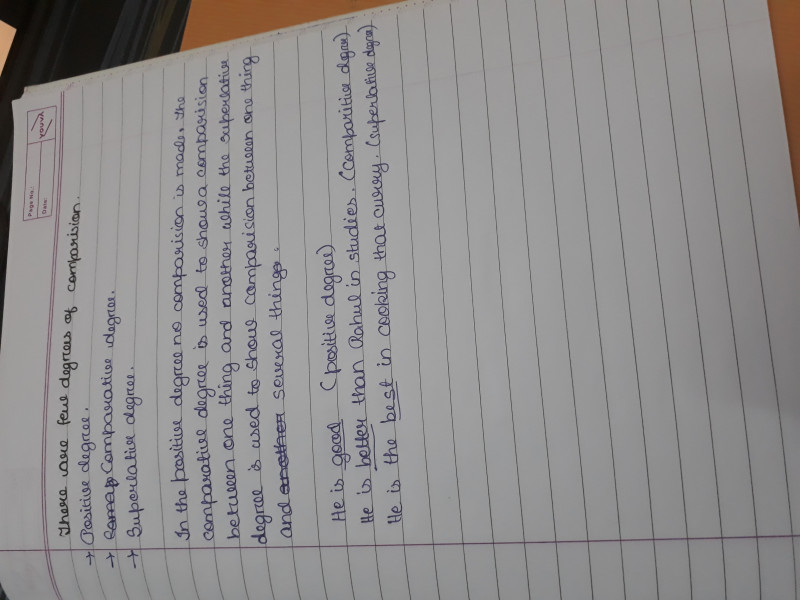 Page No.:
Date:
YOUVA
There are few degrees of comparision.
→ Positive degree.
→ Comparative degree.
→ Superlative degree.
In the positive degree no comparision is made. The
comparative degree is used to show a comparision
between one thing and another while the superlative
degree is used to show comparision between one thing
and another several things.
He is good (positive degree)
He is better than Rahul in studies. (Comparitive degree)
He is the best in cooking that curry. (superlative degree)